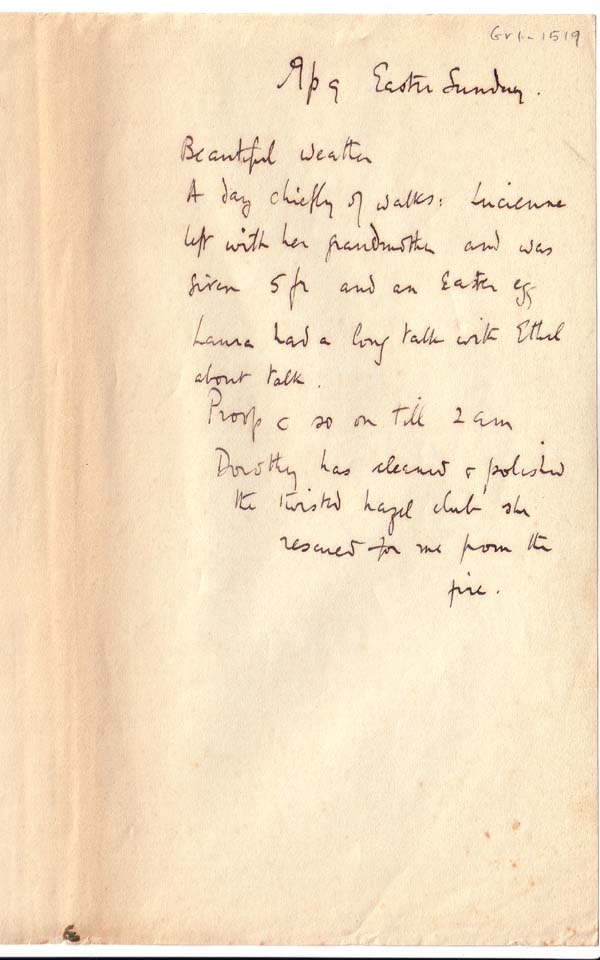 Gv1-1519
Ap 9 Easter Sunday.
Beautiful weather
A day chiefly of walks: Lucienne
left with her grandmother and was
given 5 fr and an Easter egg
Laura had a long talk with Ethel
about talk.
Proofs & so on till 2 am
Dorothy has cleaned & polished
the twisted hazel club she
rescued for me from the
fire.